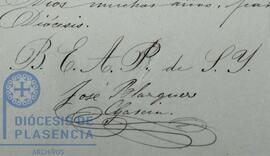 Dios muchos años, para
Diócesis.
B. E. A. P. de S. Y.
José Marques
Garcia
DIÓCESIS DE
PLASENCIA
ARCHIVOS